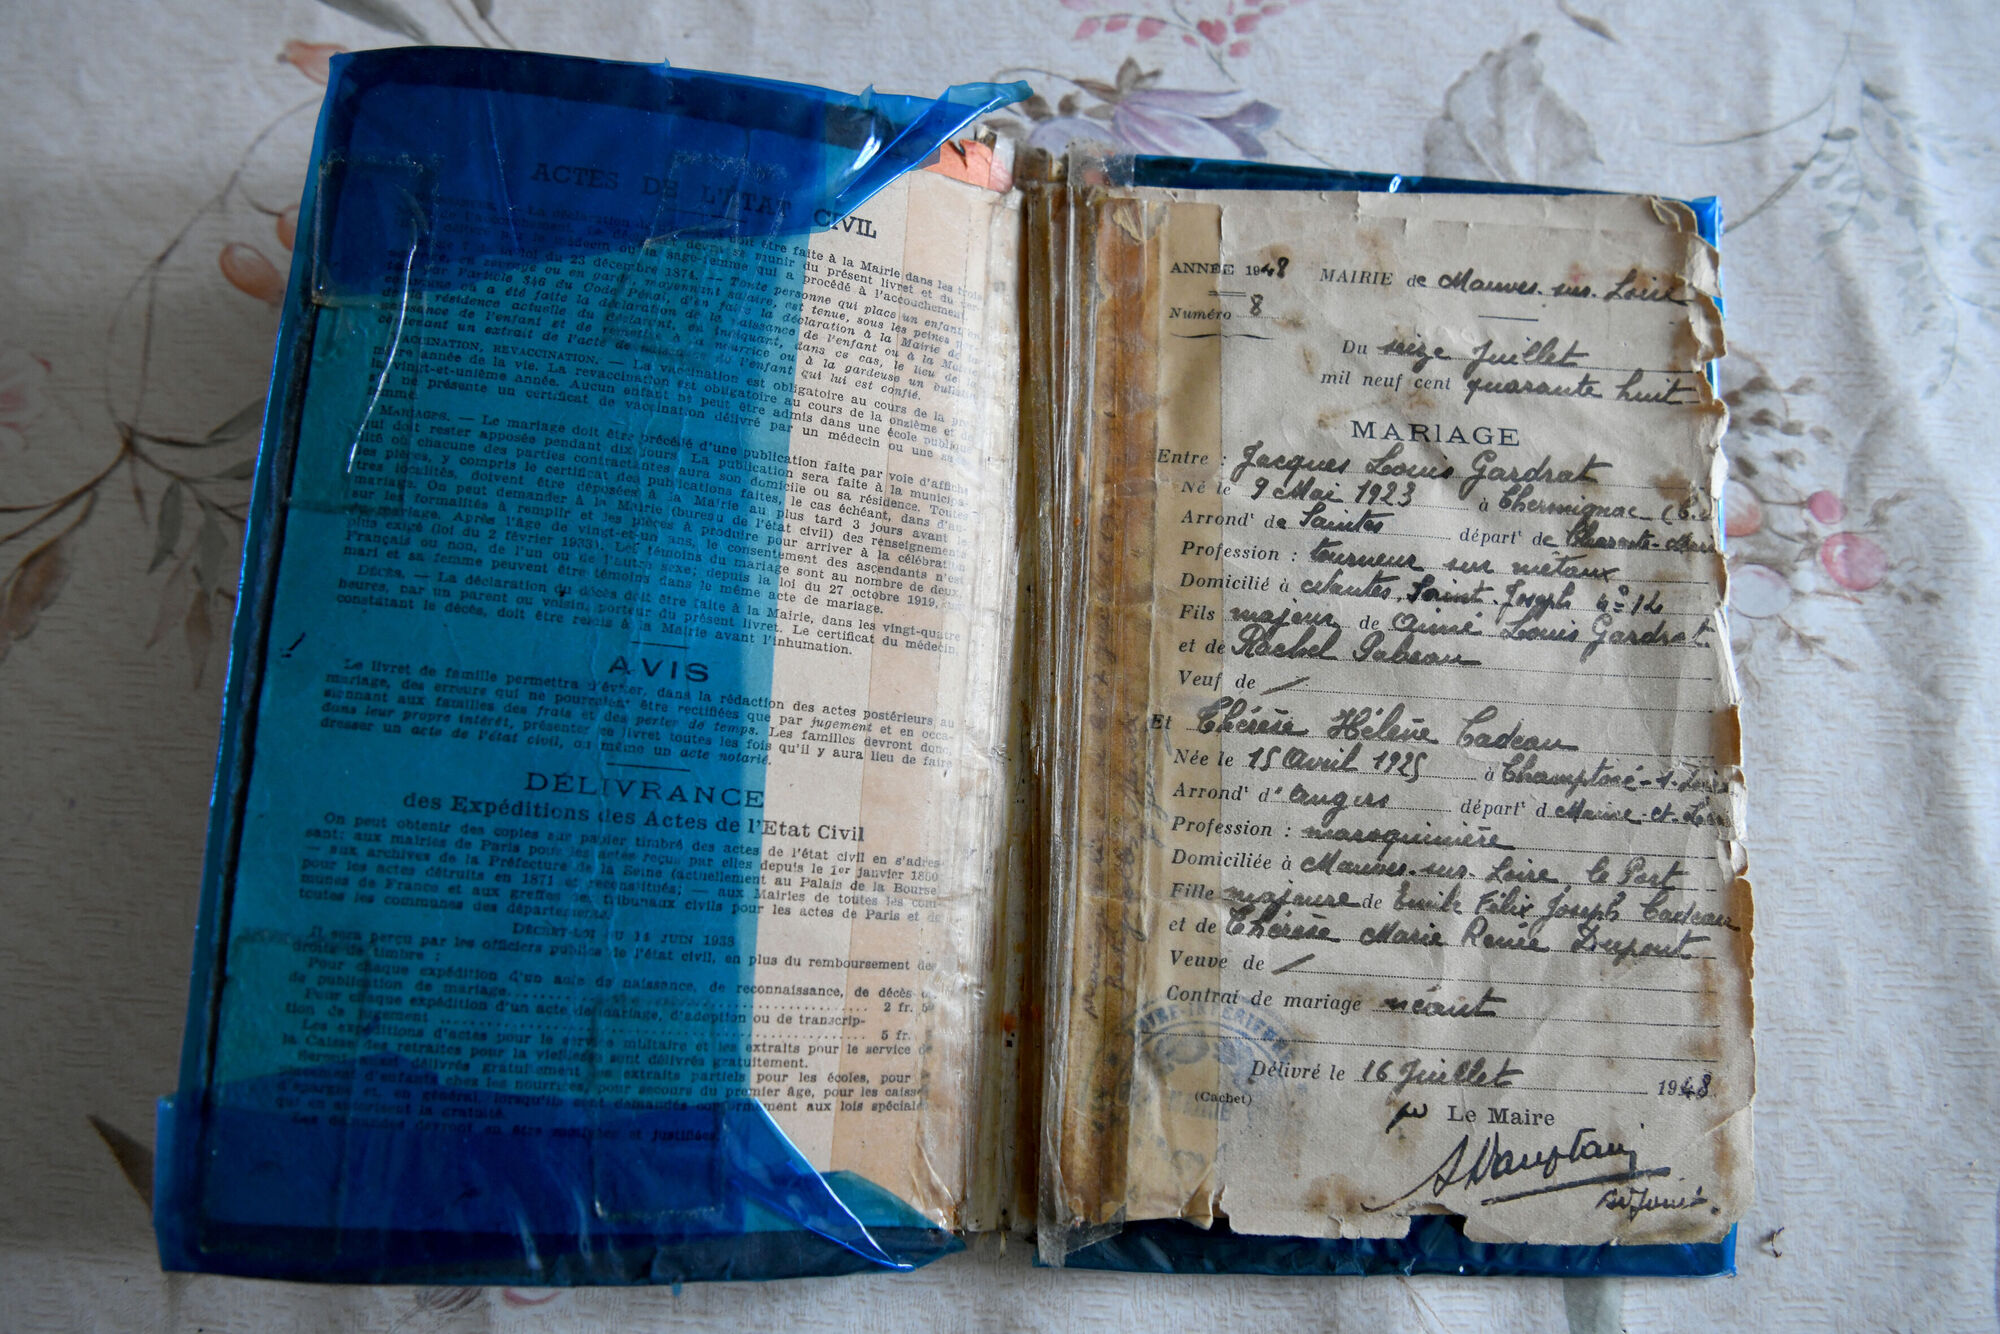 ACTES DE L'ÉTAT CIVIL
La déclaration de doit être faite à la Mairie dans les trois
de l'accouchement. Le devra se munir du présent livret et du
délivré par le médecin ou la sage-femme qui a procédé à l'accouchement.
loi du 23 décembre 1874. — Toute personne qui place un enfant en
nourrice, en sevrage ou en garde, moyennant salaire, est tenue, sous les peines
par l'article 346 du Code Pénal, d'en faire la déclaration à la Mairie de la
commune où a été faite la déclaration de naissance de l'enfant ou à la Mairie
de la résidence actuelle du déclarant, en indiquant, dans ce cas, le lieu de la
naissance de l'enfant et de remettre à la nourrice ou à la gardeuse un bulletin
contenant un extrait de l'acte de naissance de l'enfant qui lui est confié.
VACCINATION, REVACCINATION. — La vaccination est obligatoire au cours de la pre-
mière année de la vie. La revaccination est obligatoire au cours de la onzième et de
la vingt-et-unième année. Aucun enfant ne peut être admis dans une école publique
s'il ne présente un certificat de vaccination délivré par un médecin ou une sage-
femme.
MARIAGES. — Le mariage doit être précédé d'une publication faite par voie d'affiche
qui doit rester apposée pendant dix jours. La publication sera faite à la municipa-
lité où chacune des parties contractantes aura son domicile ou sa résidence. Toutes
les pièces, y compris le certificat des publications faites, le cas échéant, dans d'au-
tres localités, doivent être déposées à la Mairie au plus tard 3 jours avant le
mariage. On peut demander à la Mairie (bureau de l'état civil) des renseignements
sur les formalités à remplir et les pièces à produire pour arriver à la célébration
du mariage. Après l'âge de vingt-et-un ans, le consentement des ascendants n'est
plus exigé (loi du 2 février 1933). Les témoins du mariage sont au nombre de deux,
Français ou non, de l'un ou de l'autre sexe; depuis la loi du 27 octobre 1919, un
mari et sa femme peuvent être témoins dans le même acte de mariage.
DÉCÈS. — La déclaration du décès doit être faite à la Mairie, dans les vingt-quatre
heures, par un parent ou voisin, porteur du présent livret. Le certificat du médecin,
constatant le décès, doit être remis à la Mairie avant l'inhumation.
AVIS
Le livret de famille permettra d'éviter, dans la rédaction des actes postérieurs au
mariage, des erreurs qui ne pourraient être rectifiées que par jugement et en occa-
sionnant aux familles des frais et des pertes de temps. Les familles devront donc,
dans leur propre intérêt, présenter ce livret toutes les fois qu'il y aura lieu de faire
dresser un acte de l'état civil, ou même un acte notarié.
DÉLIVRANCE
des Expéditions des Actes de l'Etat Civil
On peut obtenir des copies sur papier timbré des actes de l'état civil en s'adres-
sant: aux mairies de Paris pour les actes reçus par elles depuis le 1er janvier 1860
— aux archives de la Préfecture de la Seine (actuellement au Palais de la Bourse
pour les actes détruits en 1871 et reconstitués; — aux Mairies de toutes les com-
munes de France et aux greffes des tribunaux civils pour les actes de Paris et de
toutes les communes des départements.
DÉCRET-LOI DU 14 JUIN 1938
Il sera perçu par les officiers publics de l'état civil, en plus du remboursement des
droits de timbre :
Pour chaque expédition d'un acte de naissance, de reconnaissance, de décès
de publication de mariage........ 2 fr. 50
Pour chaque expédition d'un acte de mariage, d'adoption ou de transcrip-
tion de jugement ........ 5 fr.
Les expéditions d'actes pour le service militaire et les extraits pour le service de
la Caisse des retraites pour la vieillesse sont délivrés gratuitement.
Seront aussi délivrés gratuitement les extraits partiels pour les écoles, pour
placement d'enfants chez les nourrices, pour secours du premier âge, pour les caisses
d'épargne et, en général, lorsqu'ils sont demandés conformément aux lois spéciales
qui en autorisent la gratuité.
Les demandes devront en être motivées et justifiées.
ANNÉE 1948 MAIRIE de Mauves-sur-Loire
Numéro 8
Du seize Juillet
mil neuf cent quarante huit
MARIAGE
Entre : Jacques Louis Gardrat
Né le 9 Mai 1923 à Chermignac (C.
Arrondt de Saintes départt de Charente-Mari
Profession : tourneur sur métaux
Domicilié à Nantes, Saint-Joseph no 12
Fils majeur de Aimé Louis Gardrat
et de Rachel Pabeau
Veuf de /
Et Thérèse Hélène Cadeau
Née le 15 Avril 1925 à Champtocé-s-Loire
Arrondt d' Angers départt d Maine-et-Loire
Profession : maroquinière
Domiciliée à Mauves-sur-Loire le Port
Fille majeure de Emile Félix Joseph Cadeau
et de Thérèse Marie Renée Dupont
Veuve de /
Contrat de mariage néant
LOIRE-INFÉRIEURE
MAIRIE
Délivré le 16 Juillet 1948
(Cachet)
Le Maire